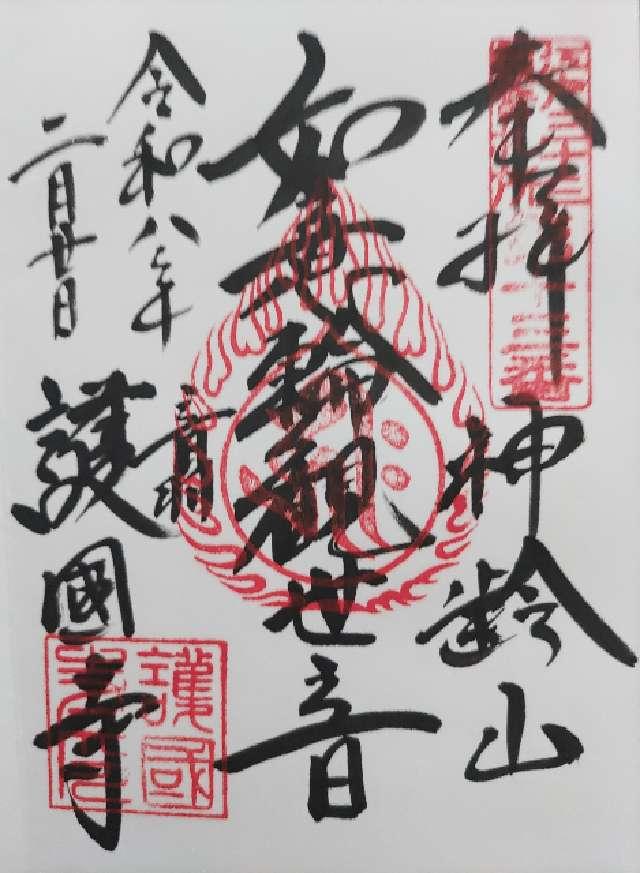 奉拝
神齢山
如意輪観世音
音羽
護國寺
令和八年
二月廿日
護國寺